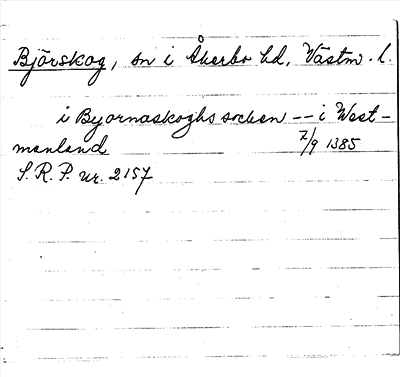 Björskog, sn i Åkerbo hd, Västm. l.
i Byornaskoghs socken -- i West-
manland 7/9 1385
S. R. P. nr. 2157